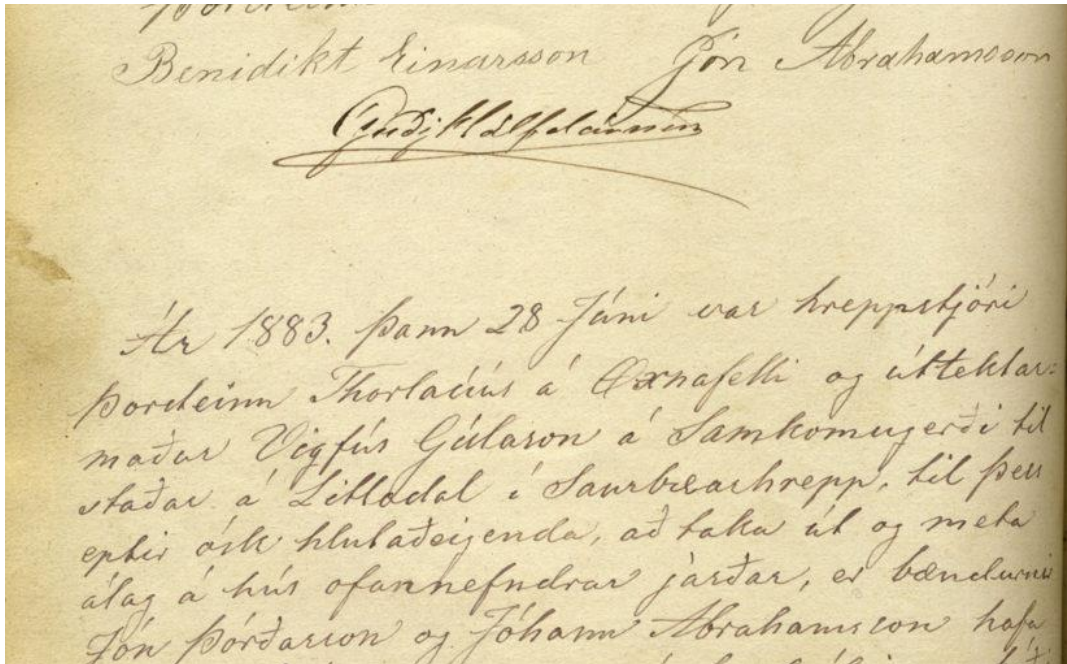 Benidikt Einarsson Jón Abrahamsson
Ár 1883. þann 28 Júni var hreppstjóri
Þorsteinn Thorlacíus á Öxnafelli og úttektar-
maður Vigfús Gíslason á Samkomugerði til
staðar á Litladal í Saurbæarhrepp, til þess
eptir ósk hlutaðeigenda, að taka út og meta
álag á hús ofannefndrar jarðar, er bændurnir
Jón Þórðarson og Jóhann Abrahamsson hafa